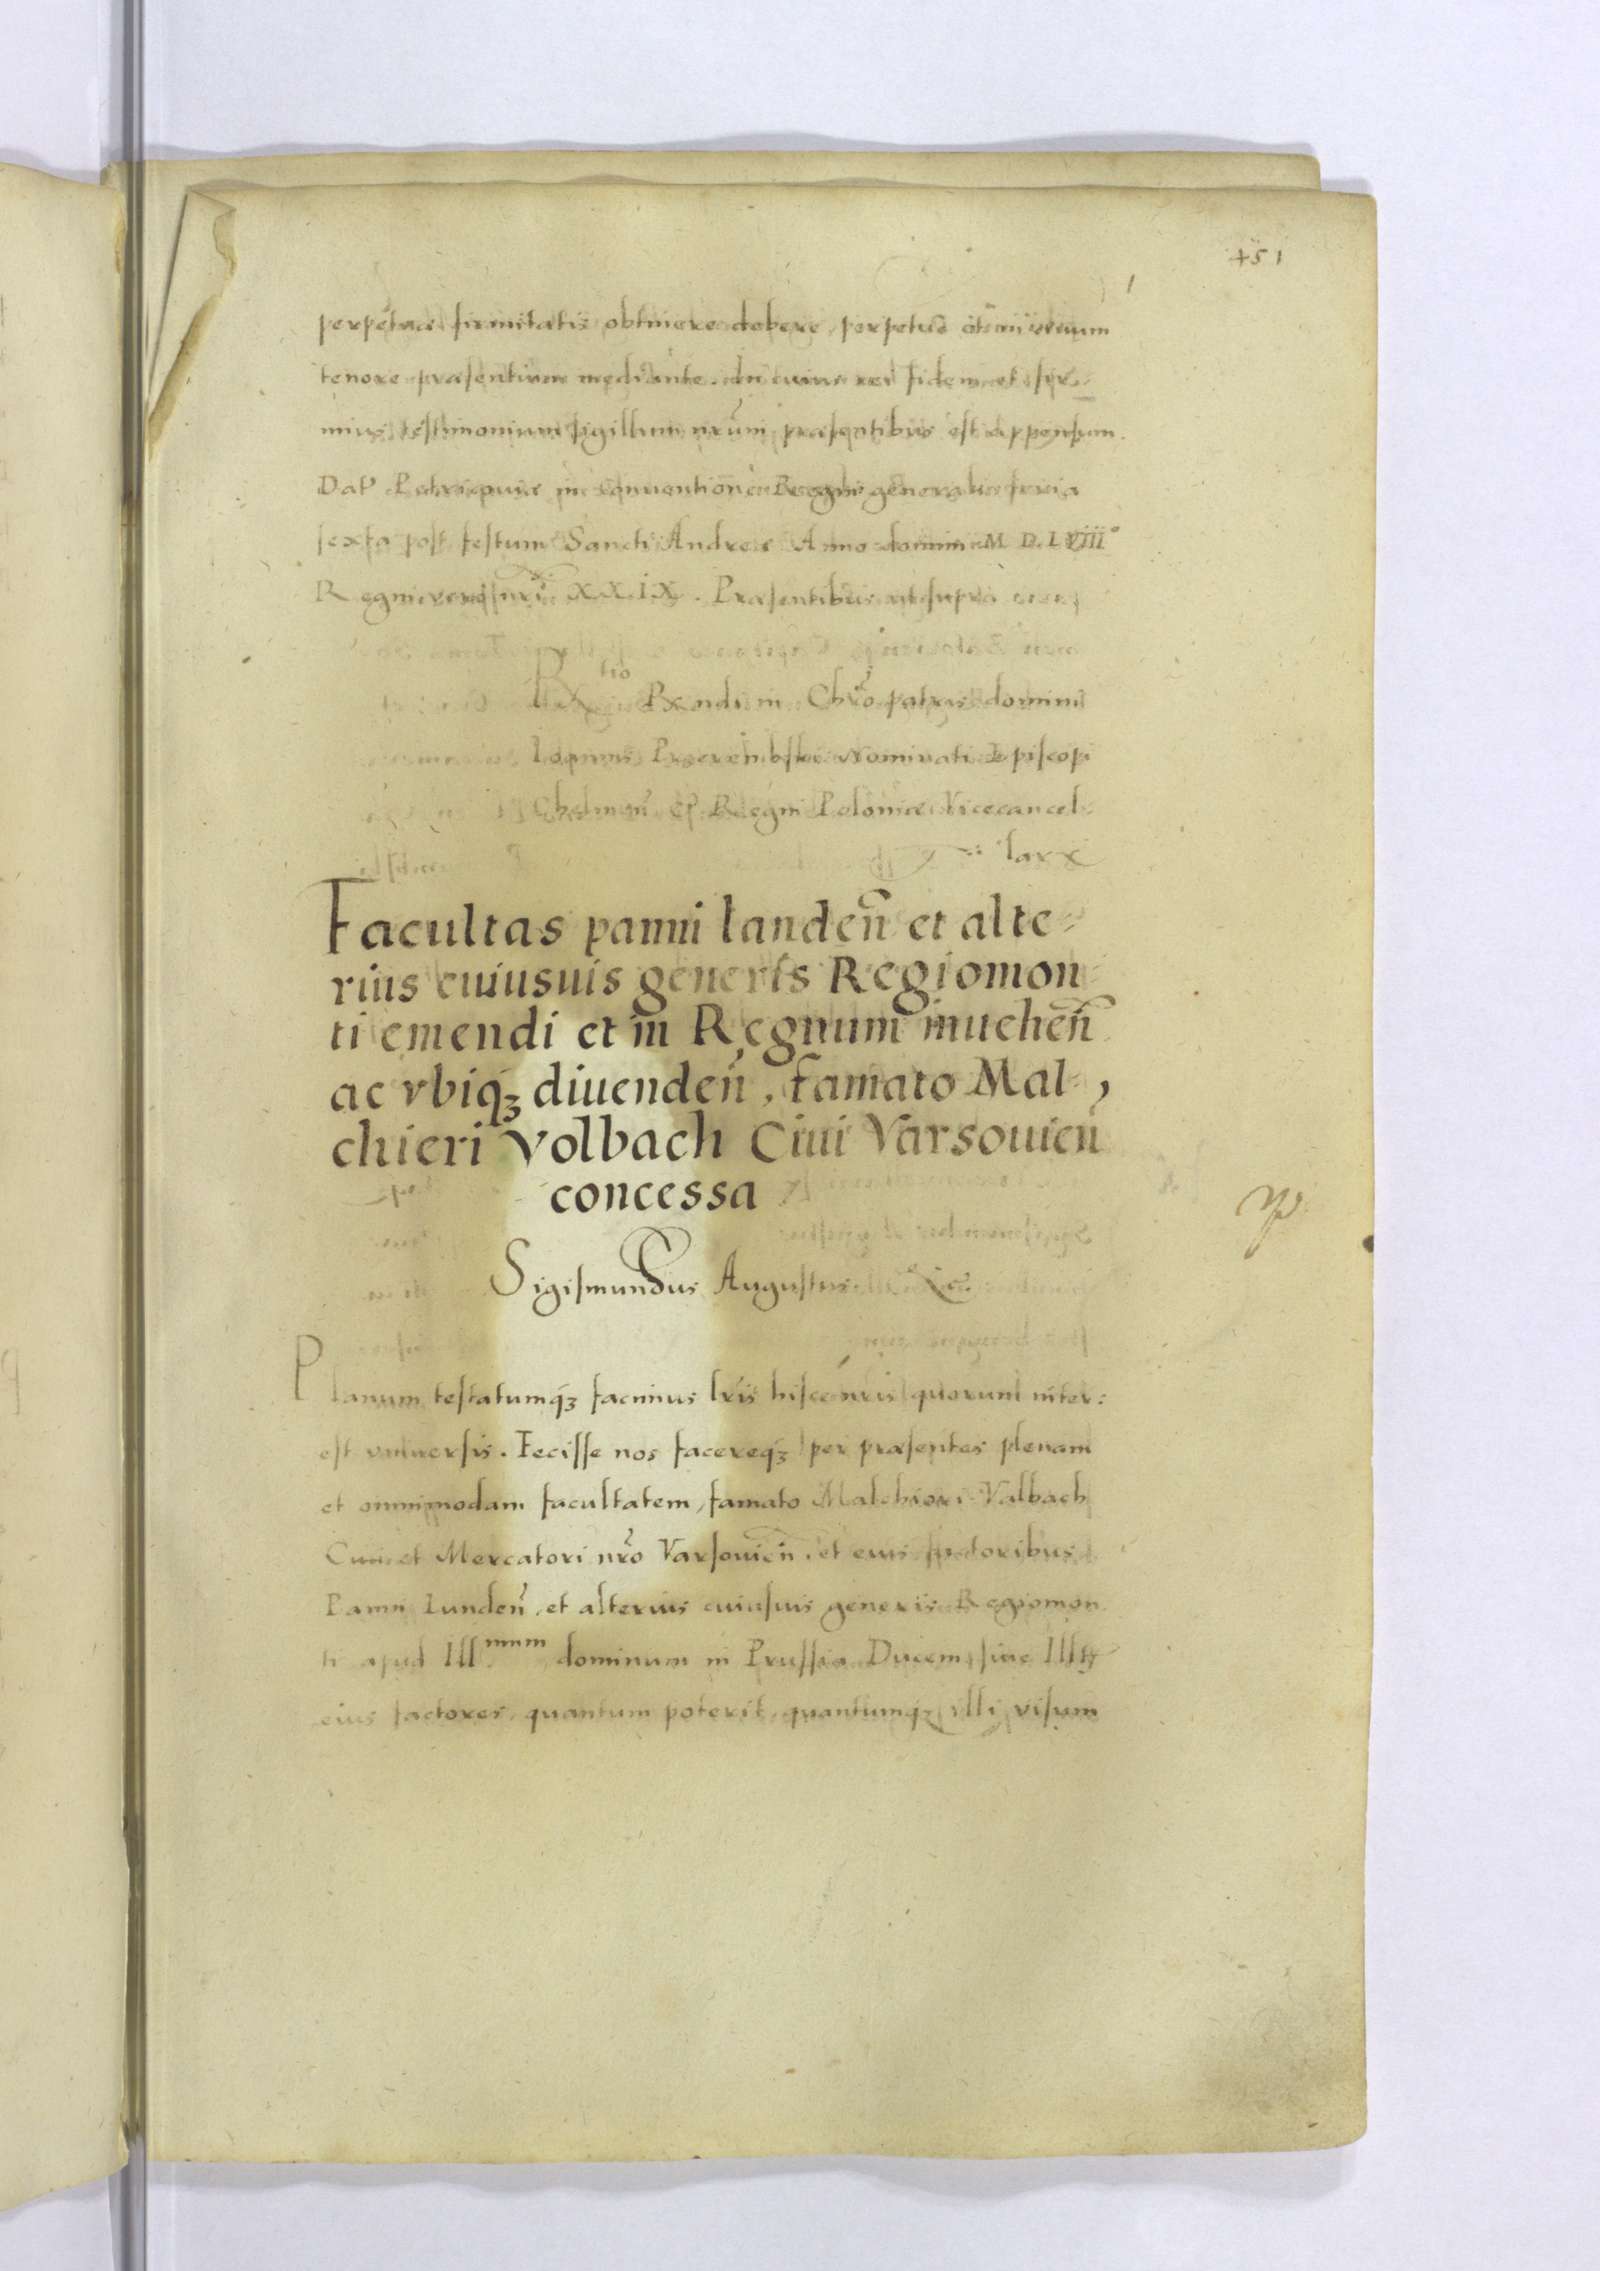 451
perpetuae firmitatis obtinere debere, perpetuo
tenore praesentium mediante. In cuius rei fidem et fir-
mius testimonium sigillum nr̃um praesentibus est appensum.
Dat' Petricouiae in conuentione Regni generali feria
sexta post festum Sancti Andreae Anno domini M. D. LVIII°
Regni vero nr̃i XXIX. Praesentibus ut supra
R̃tio R̃ndi in Chr̃o patris domini
Ioannis Przerembski Nominati Episcopi
Chelmeñ et Regni Poloniae Vicecancel-
larÿ
Facultas panni landeñ et alte-
rius cuiusuis generis Regiomon-
ti emendi et in Regnum inueheñ
ac vbiq₃ diuendeñ, famato Mal-
chieri Volbach Ciui Varsouień
concessa
Sigismundus Augustus &c.
Planum testatumq₃ facimus lr̃is hisce nr̃is quorum inter:
est vniuersis. Fecisse nos facereq₃ per praesentes plenam
et omnimodam facultatem, famato Malchiori Valbach
Ciui et Mercatori nr̃o Varsouieñ, et eius factoribus
Panni Lundeñ, et alterius cuiusuis generis Regiomon
ti apud Illmum dominum in Prussia Ducem siue Illtis
eius factores, quantum poterit, quantumq₃ illi visum